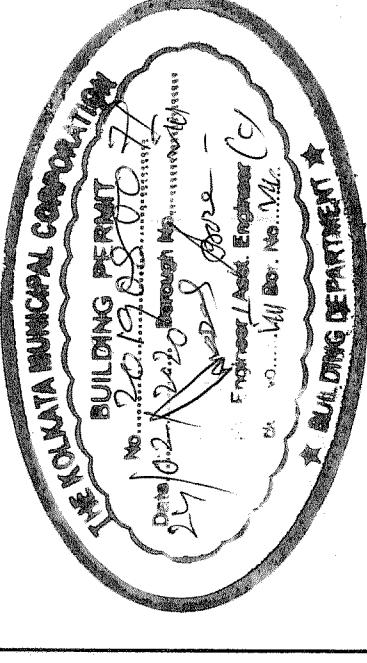 THE KOLKATA MUNICIPAL CORPORATION
BUILDING PERMIT
No
Date 24/02/2020 Borough No
Engineer / Asst. Engineer (C)
No. VII Bor. No. VII
★ BUILDING DEPARTMENT ★